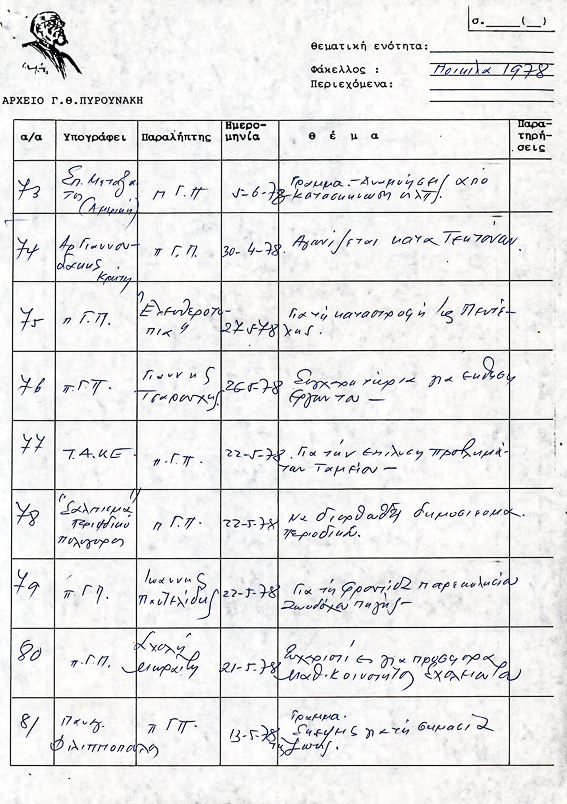 σ.____(__)
Θεματική ενότητα:
Φάκελλος : Ποικίλα 1978
Περιεχόμενα:
ΑΡΧΕΙΟ Γ.Θ.ΠΥΡΟΥΝΑΚΗ
α/α Υπογράφει Παραλήπτης Ημερομηνία θέμα Παρατηρήσεις
73 Σπ. Μεταξάτος (Αμερική) π Γ.Π 5-6-78 Γράμμα.- Αναμνήσεις από
κατασκήνωση κλπ.
74 Αρ Γιαννουδάκης Κρήτη π Γ.Π. 30-4-78 Αγωνίζεται κατά Τεκτόνων.
75 π Γ.Π. "Ελευθεροτυπία" 27-5-78 Για τη καταστροφή της Πεντέλης.
76 π.Γ.Π. Γιάννης Τσαρούχης 26-5-78 Συγχαρητήρια για έκθεση
έργων του —
77 Τ.Α.Κ.Ε. π.Γ.Π. 22-5-78 Για την επίλυση προβλημάτων Ταμείου —
78 "Σάλπισμα" περιοδικό π Γ.Π. 22-5-78 Να διορθωθή δημοσίευμα
περιοδικού.
79 π.Γ.Π. Ιωάννης Παντελίδης 22-5-78 Για τη φροντίδα παρεκκλησίου
Ζωοδόχου Πηγής —
80 π.Γ.Π. Σχολή Μωραΐτη 21-5-78 Ευχαριστίες για προσφορά
Μαθ. Κοινότητος
81 Παναγ. Φιλιππόπουλος π Γ.Π. 13-5-78 Γράμμα.
Σκέψεις για τη σημασία
της ζωής.